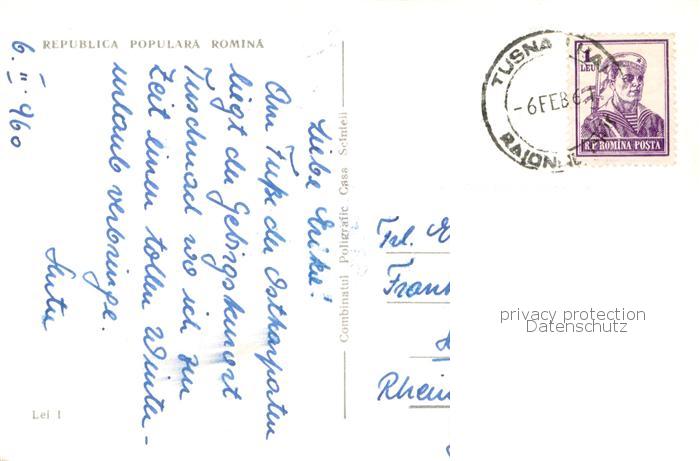 REPUBLICA POPULARĂ ROMÎNĂ
6. II. 960
Liebe Erika!
Am Fuße der Ostkarpaten
liegt der Gebirgskurort
Tuschnad wo ich zur
Zeit einen tollen Winter-
urlaub verbringe.
Lei 1
Combinatul Poligrafic Casa Scînteii
TUSNAD
-6 FEB 6
RAION
1
LEU
R.P. ROMINA POSTA
Frl. E
Fran
Rhein
privacy protection
Datenschutz